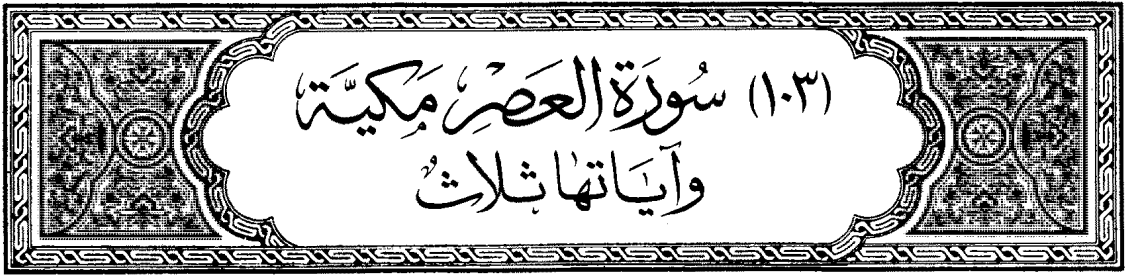 (١٠٣) سُورَةُ العَصْرِ مَكِّيَّة
وَآيَاتها ثلاثٌ